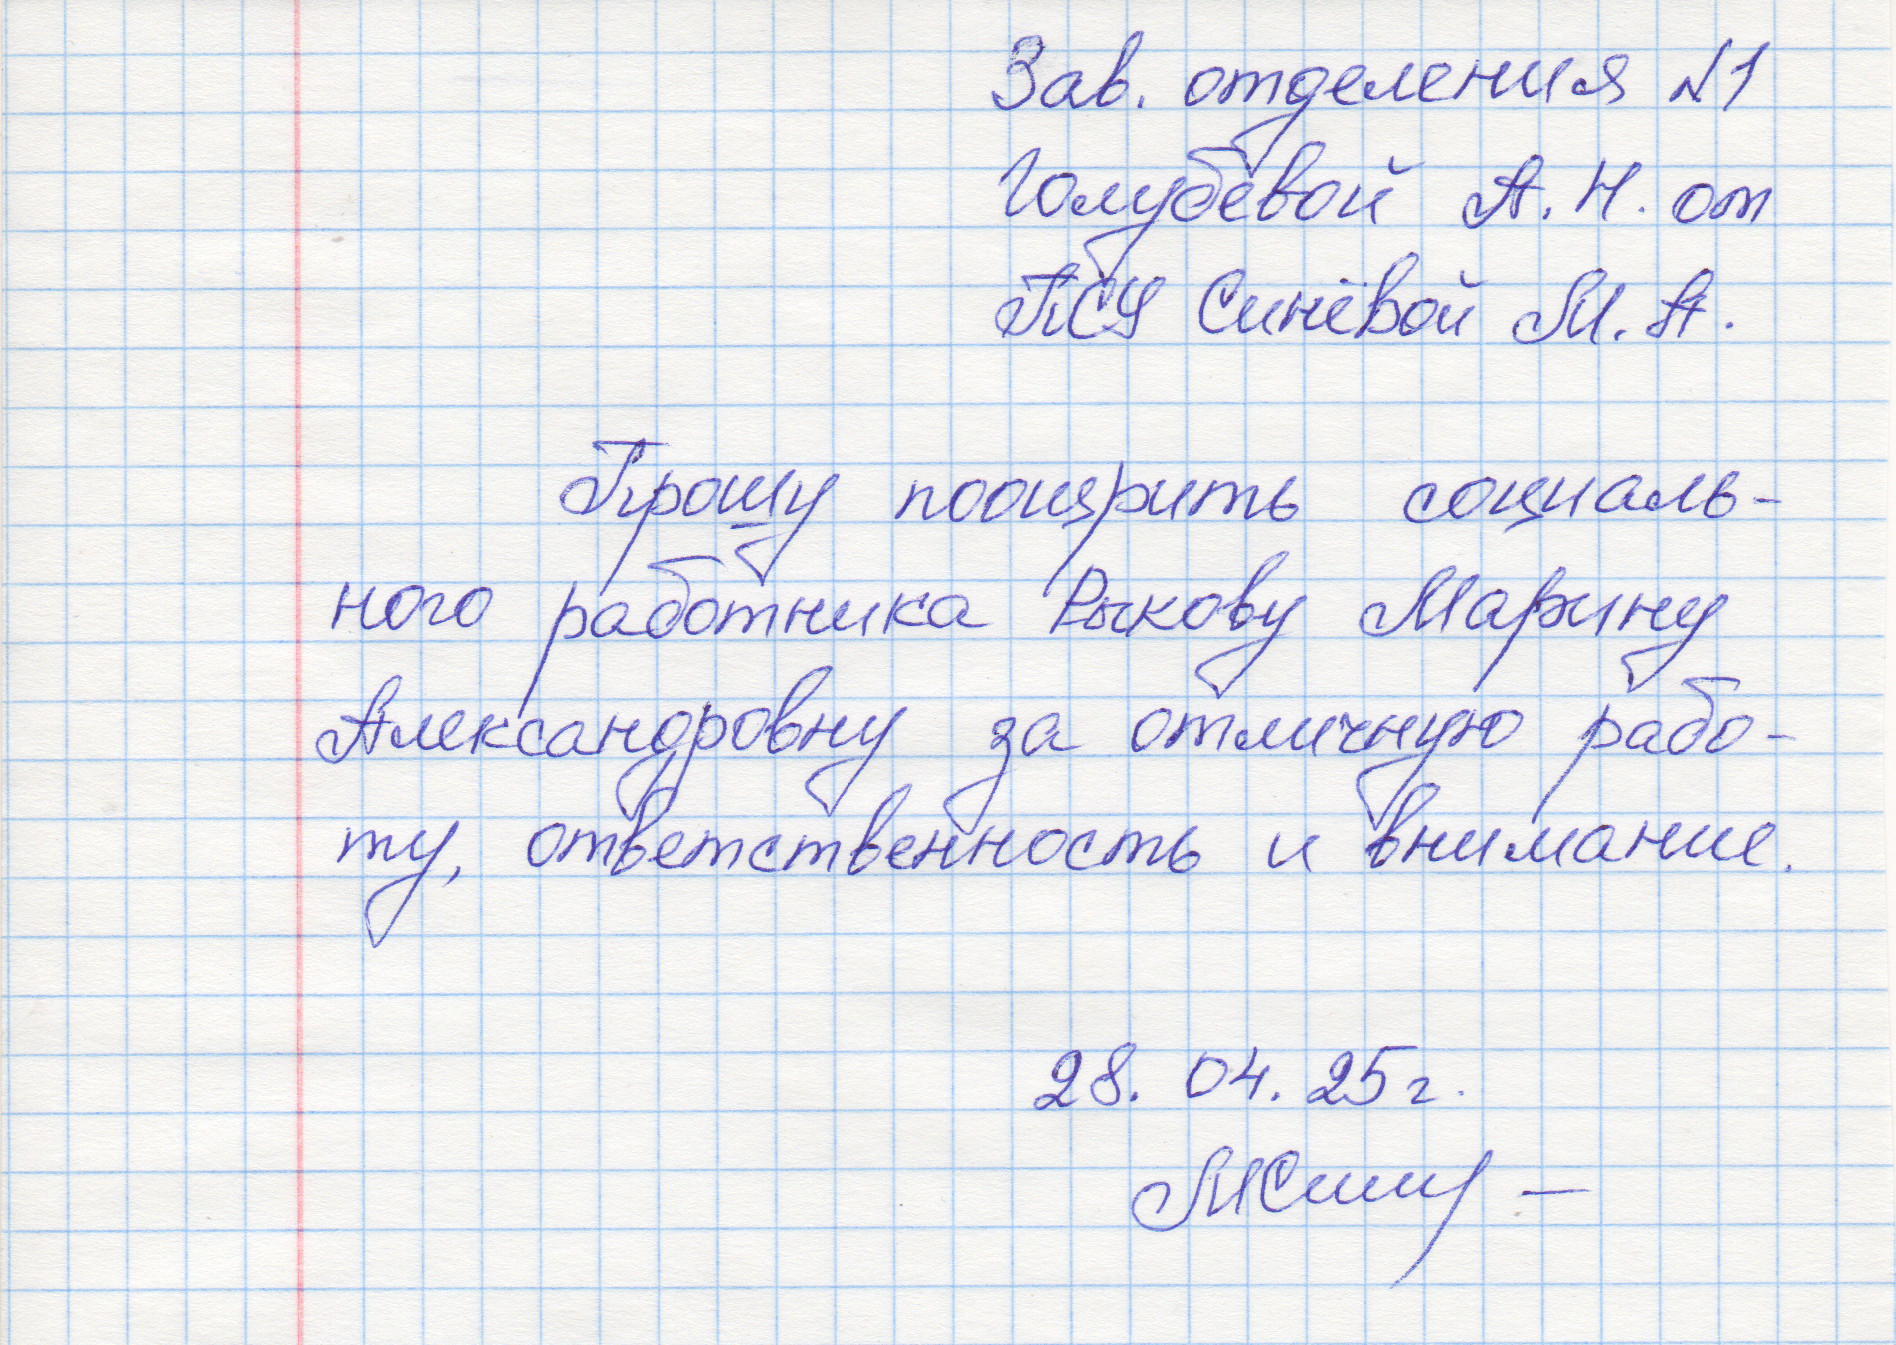 Зав. отделения №1
Голубевой А. Н. от
ПСУ Синёвой М. А.
Прошу поощрить социаль-
ного работника Рыкову Марину
Александровну за отличную рабо-
ту, ответственность и внимание.
28. 04. 25 г.